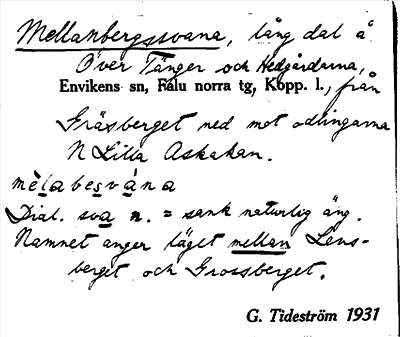 Mellanbergssvana, lång dal å
Över Tänger och Hedgårdarna,
Envikens sn, Falu norra tg, Kopp. l., från
Gräsberget ned mot odlingarna
N Lilla Askakan.
mèlabesvána
Dial. sva n. = sank naturlig äng.
Namnet anger läget mellan Lens-
berget och Grossberget.
G. Tideström 1931